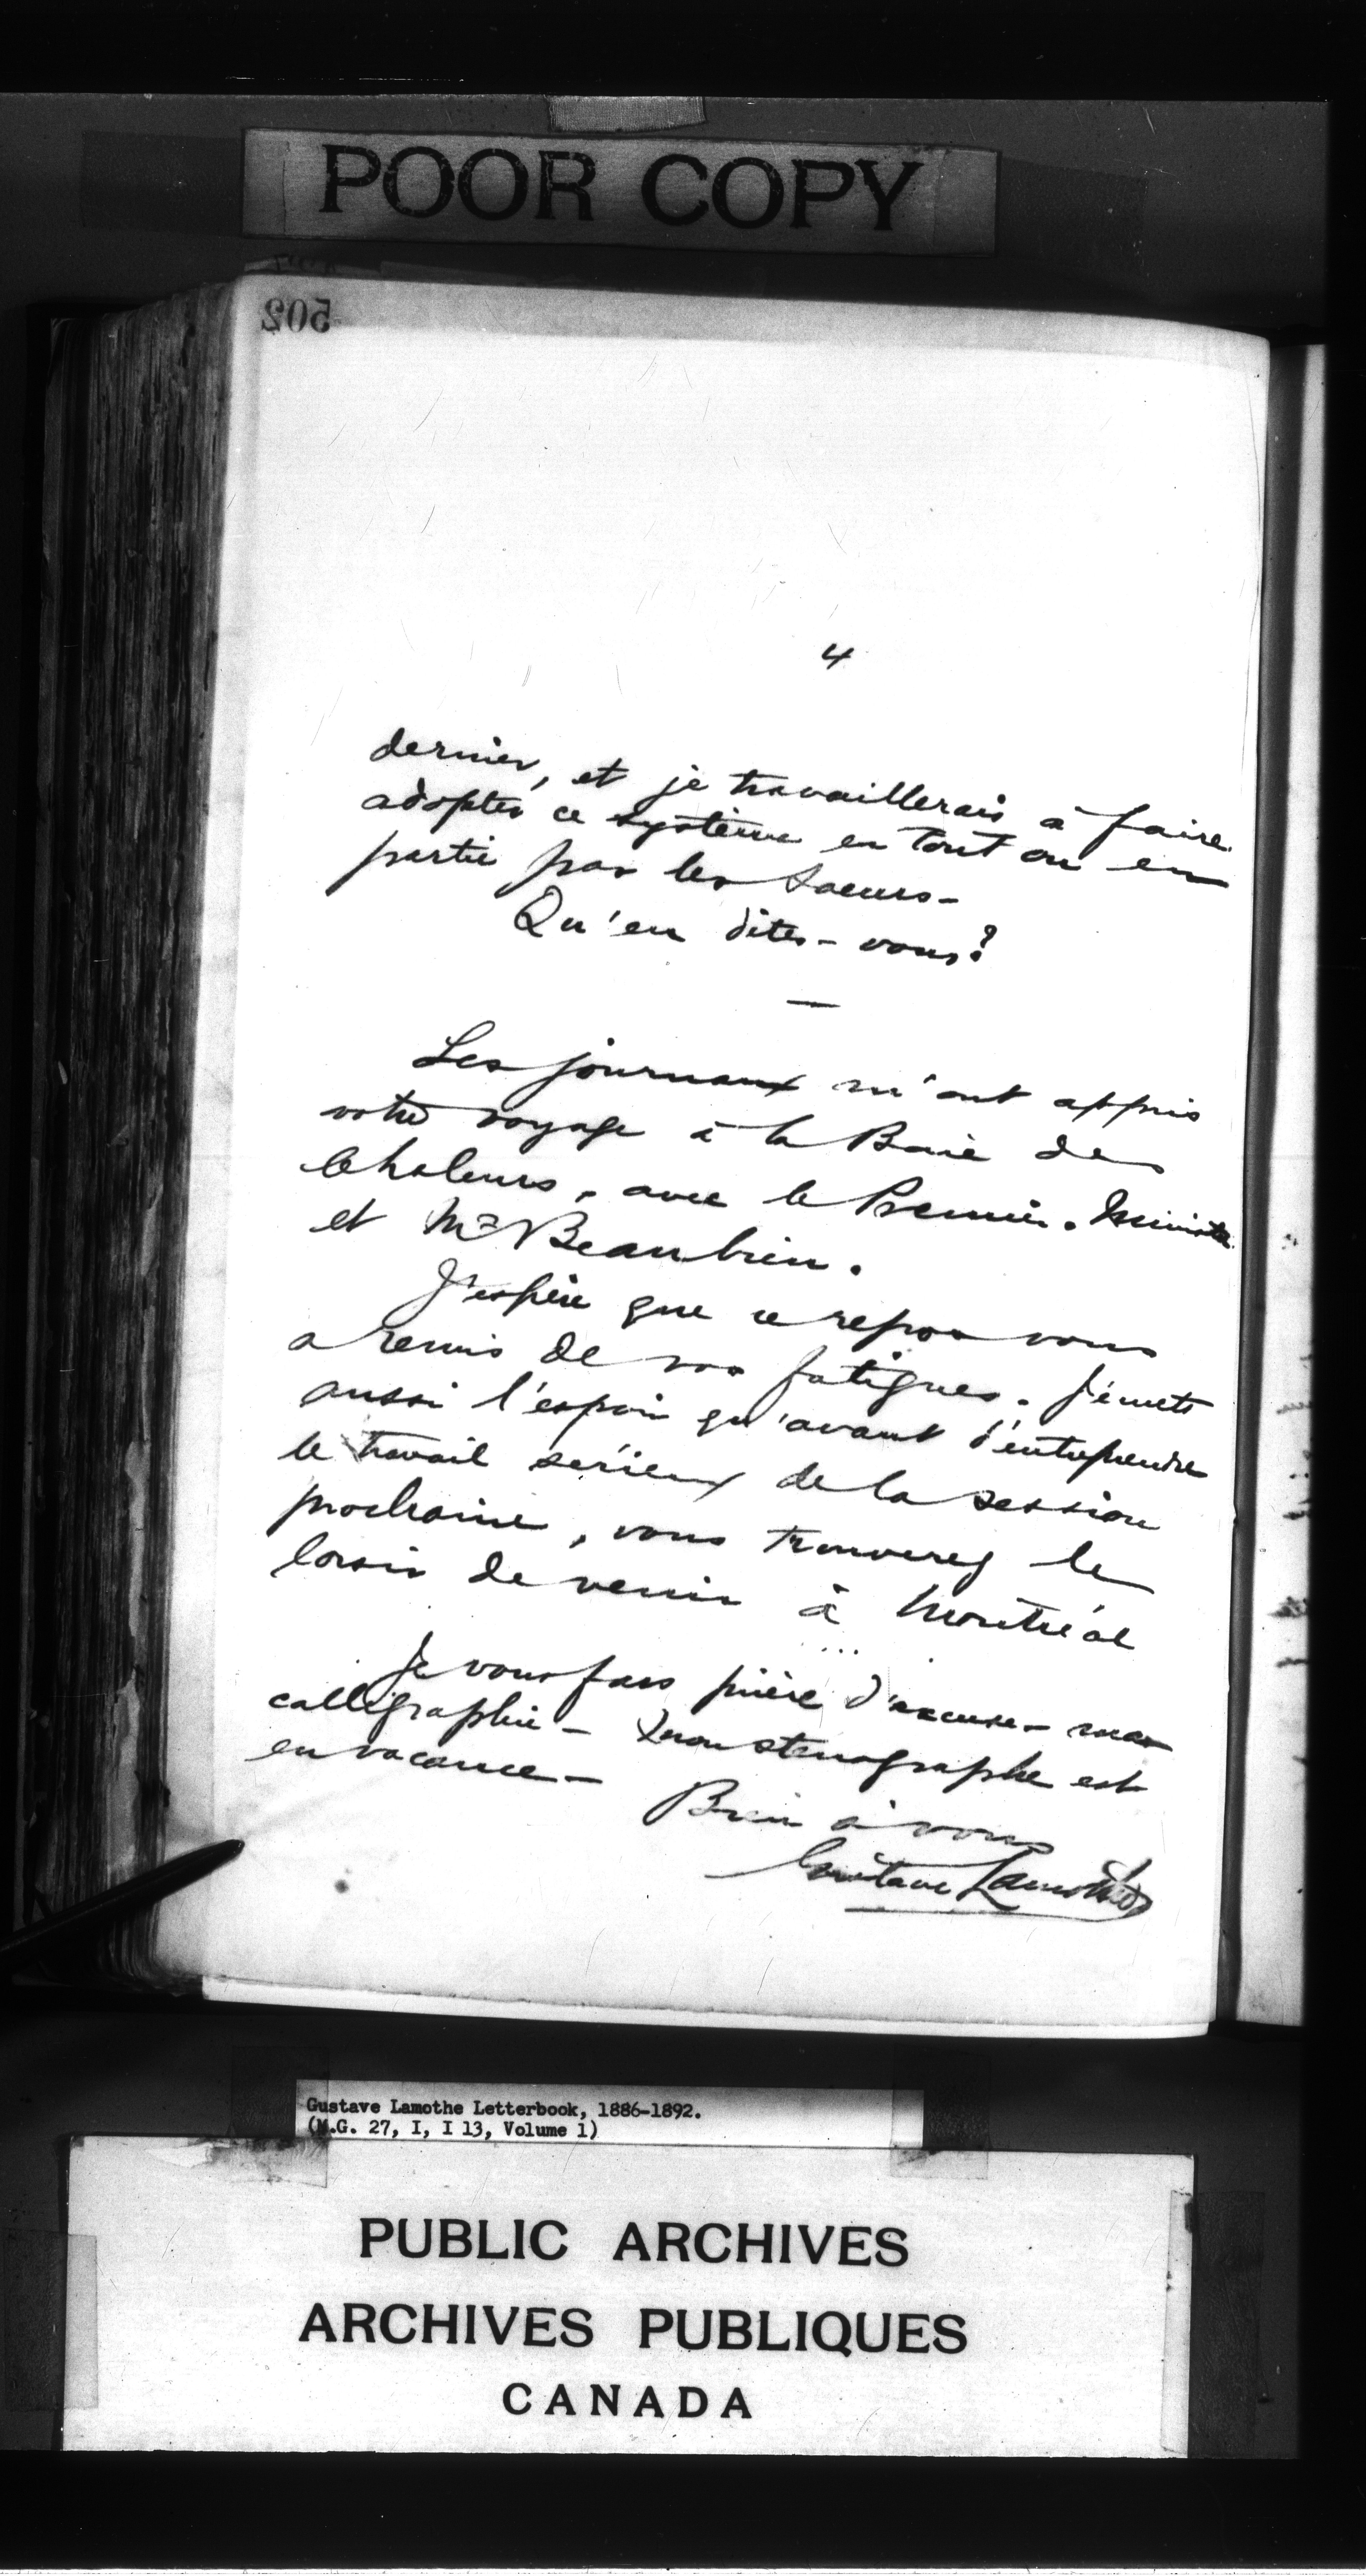 POOR COPY
502
4
dernier, et je travaillerais à faire
adopter ce système en tout ou en
partie par les Soeurs -
Qu'en dites-vous?
—
Les journaux m'ont appris
votre voyage à la Baie des
Chaleurs, avec le Premier-Ministre
et Mr Beaubien.
J'espère que ce repos vous
a remis de vos fatigues. J'émets
aussi l'espoir qu'avant d'entreprendre
le travail sérieux de la session
prochaine, vous trouverez le
loisir de venir à Montréal
...
Je vous fais prière d'excuser ma
calligraphie - mon stenographe est
en vacance -
Bien à vous
Gustave Lamothe
Gustave Lamothe Letterbook, 1886-1892.
(M.G. 27, I, I 13, Volume 1)
PUBLIC ARCHIVES
ARCHIVES PUBLIQUES
CANADA